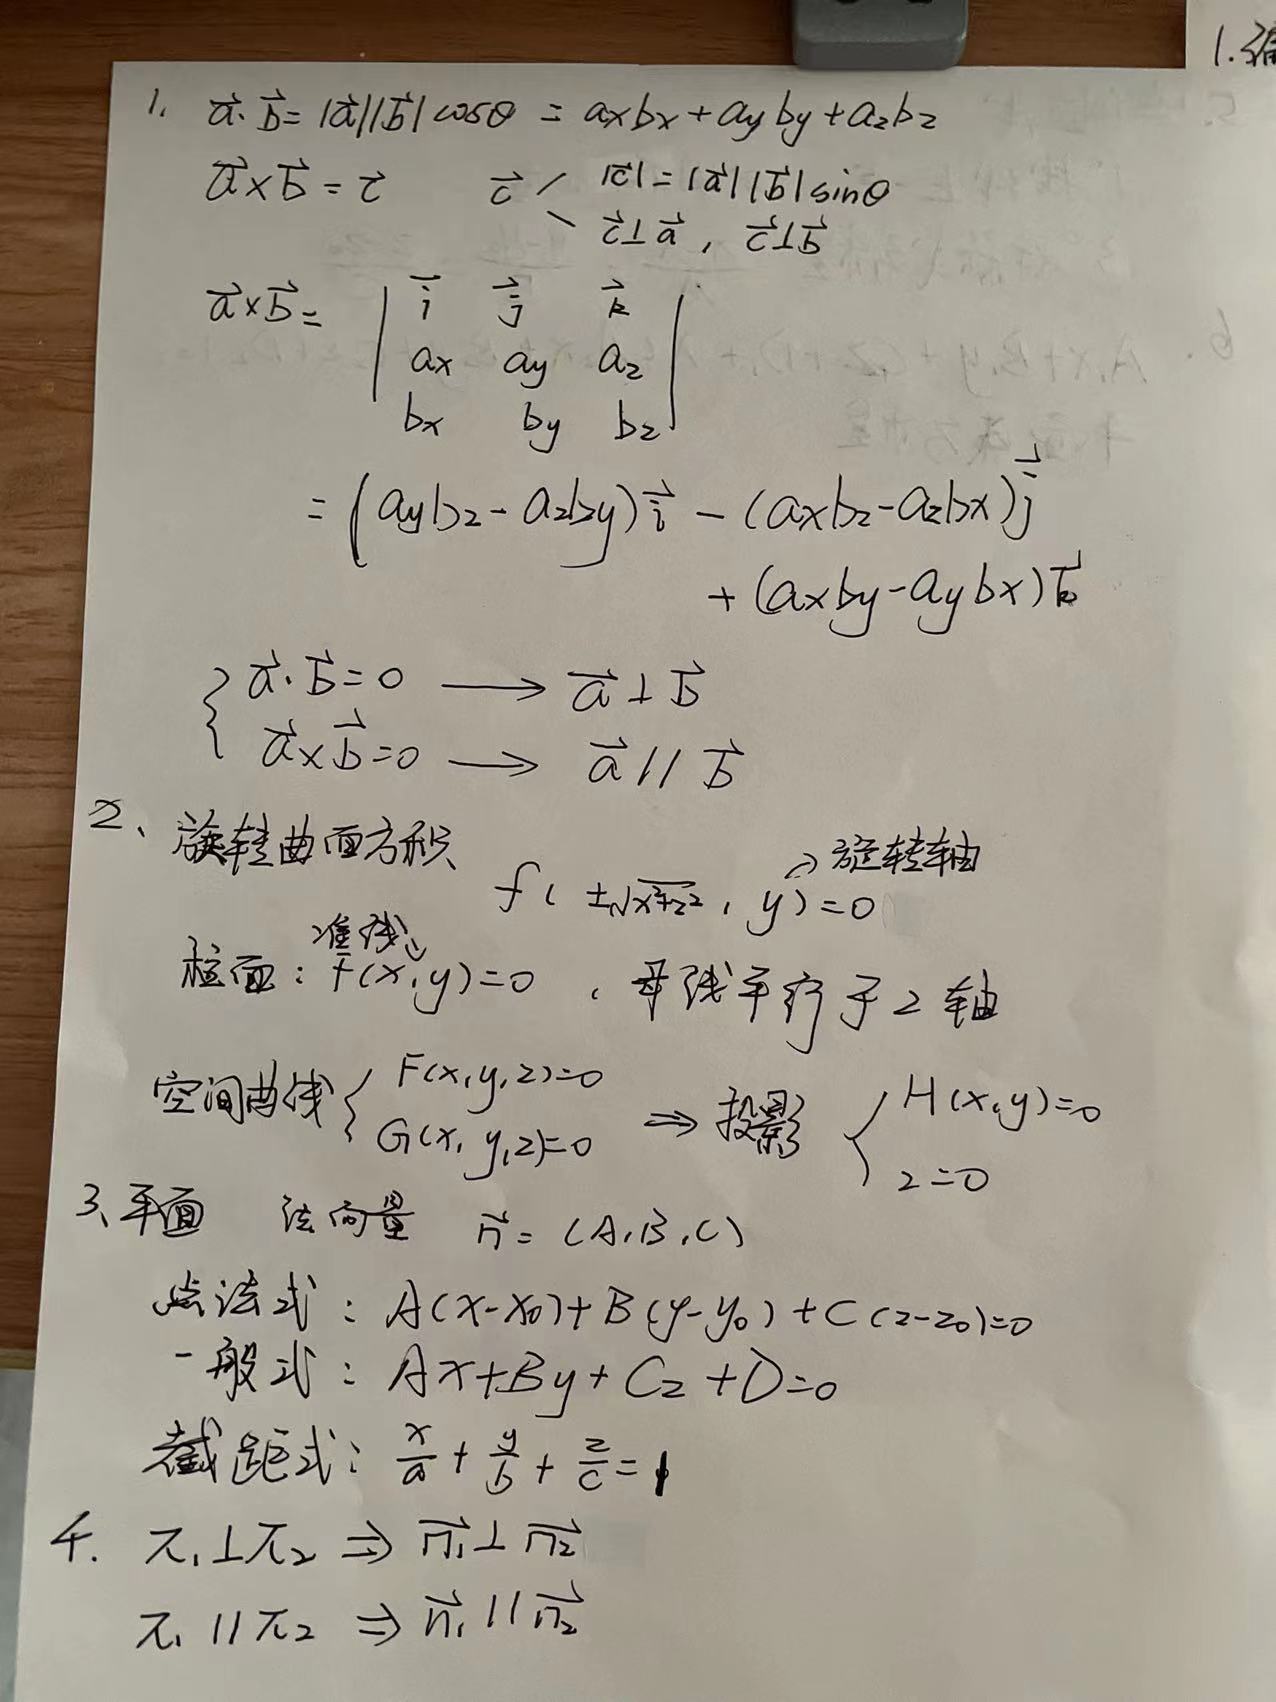 1. 编
1. a⃗·b⃗=|a⃗||b⃗|cosθ = axbx+ayby+azbz
a⃗×b⃗=c⃗ c⃗ |c⃗|=|a⃗||b⃗|sinθ
c⃗⊥a⃗, c⃗⊥b⃗
a⃗×b⃗= | i⃗ j⃗ k⃗ |
ax ay az
bx by bz
=(aybz-azby)i⃗-(axbz-azbx)j⃗
+(axby-aybx)k⃗
{ a⃗·b⃗=0 → a⃗⊥b⃗
a⃗×b⃗=0 → a⃗//b⃗
2、旋转曲面方积
旋转轴
f(±√x²+z², y)=0
准线
柱面: F(x,y)=0, 母线平行于z轴
空间曲线 { F(x,y,z)=0 ⇒ 投影 { H(x,y)=0
G(x,y,z)=0 z=0
3、平面 法向量 n⃗=(A,B,C)
点法式: A(x-x₀)+B(y-y₀)+C(z-z₀)=0
一般式: Ax+By+Cz+D=0
截距式: x/a+y/b+z/c=1
4. π₁⊥π₂ ⇒ n⃗₁⊥n⃗₂
π₁//π₂ ⇒ n⃗₁//n⃗₂